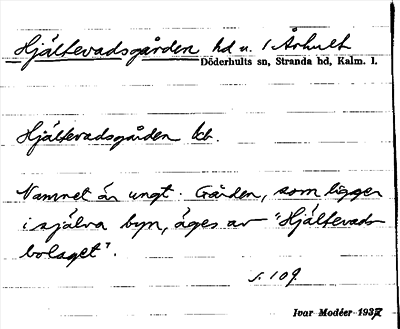 Hjältevadsgården hd u. 1 Århult
Döderhults sn, Stranda hd, Kalm. l.
Hjältevadsgården bb.
Namnet är ungt. Gården, som ligger
i själva byn, äges av "Hjältevads-
bolaget".
s. 109
Ivar Modéer 1937